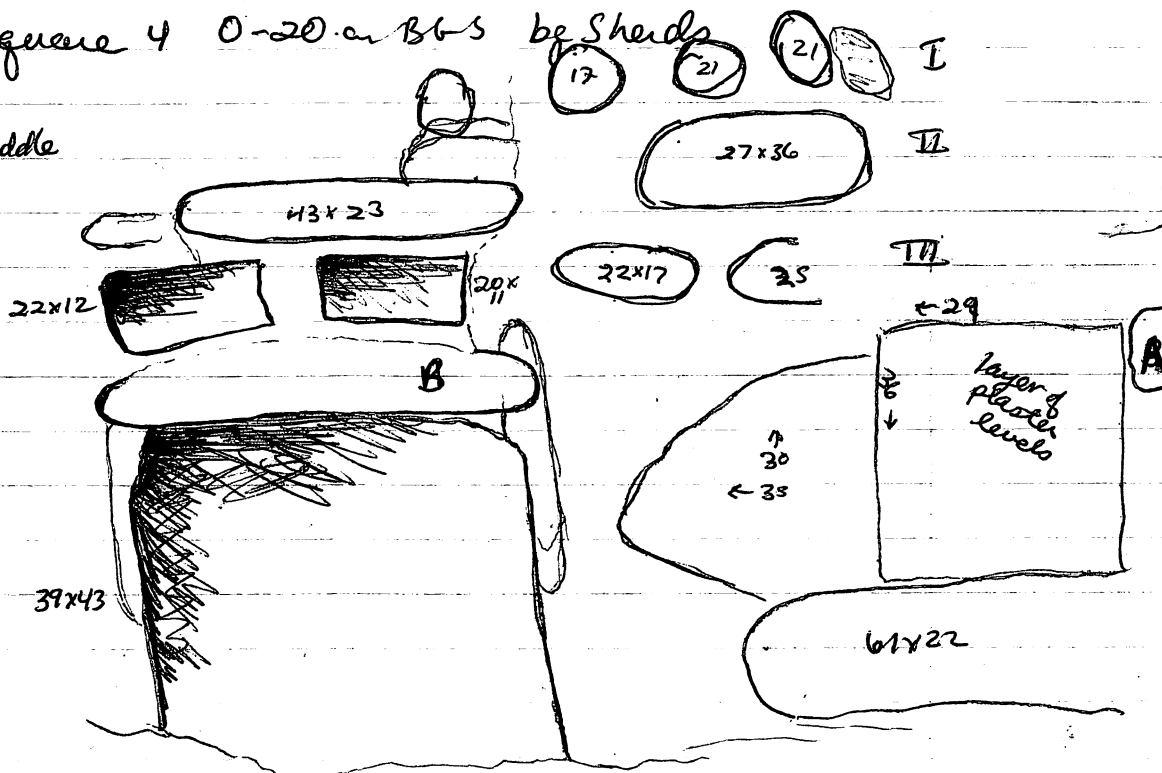 square 4 0-20 cm BGS by Sherds
17 21 21 I
ddle
27x36 II
43 x 23
22x17 25 III
22x12
20x
11
←29
A
B
36
↓
layer of
plaster
levels
↑
30
← 35
39x43
61x22